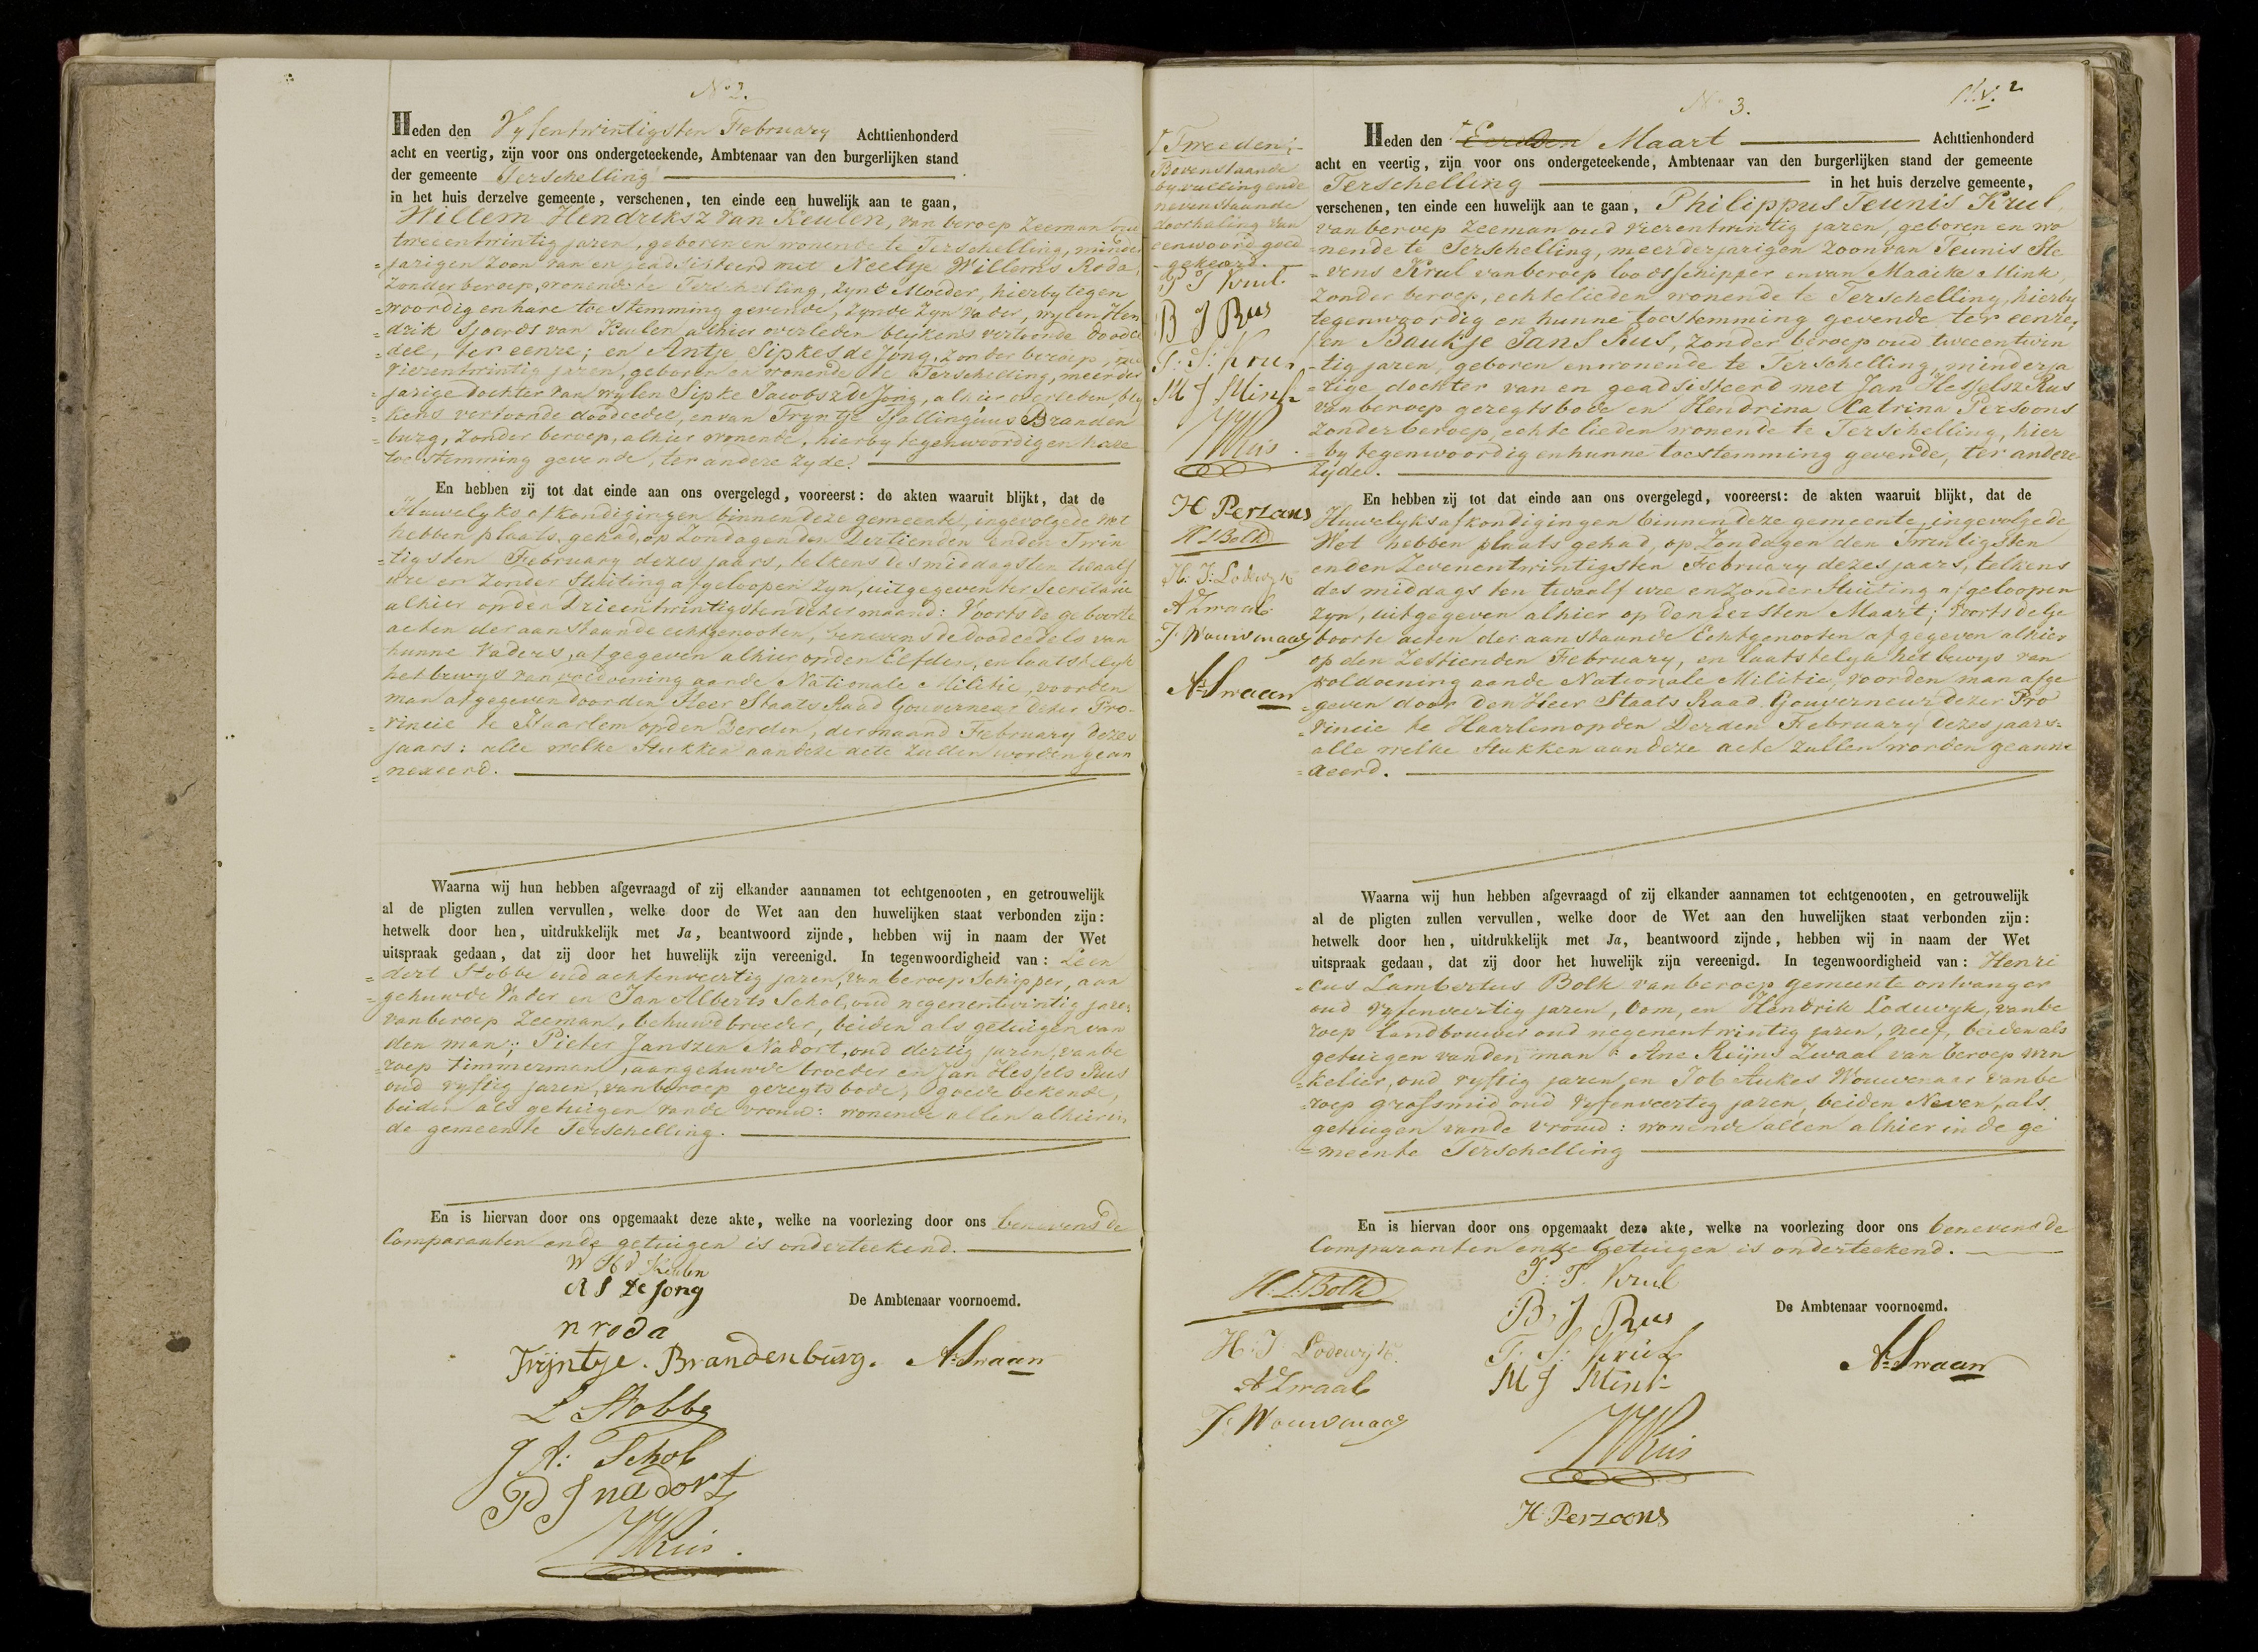 No 2.
Heden den Vyfentwintigsten February Achttienhonderd
acht en veertig, zijn voor ons ondergeteekende, Ambtenaar van den burgerlijken stand
der gemeente Terschelling
in het huis derzelve gemeente, verschenen, ten einde een huwelijk aan te gaan,
Willem Hendriksz van Keulen, van beroep Zeeman oud
tweeentwintig jaren, geboren en wonende te Terschelling, minder
=jarigen zoon van en geadsisteerd met Neeltje Willems Roda,
zonder beroep, wonende te Terschelling, zyne Moeder, hierby tegen
=woordig en hare toestemming gevende, zynde zyn Vader, wylen Hen
=drik Sjoerds van Keulen alhier overleden blykens vertoonde doodce
=del, ter eenre; en Antje Sipkes de Jong, zonder beroep, oud
vierentwintig jaren, geboren en wonende te Terschelling, meerder
=jarige dochter van wylen Sipke Jacobsz de Jong, alhier overleden, bly
=kens vertoonde doodcedel, en van Tryntje Tjallingius Branden
=burg, zonder beroep, alhier wonende, hierby tegenwoordig en hare
toestemming gevende, ter andere zyde.
En hebben zij tot dat einde aan ons overgelegd, vooreerst: de akten waaruit blijkt, dat de
Huwelyks afkondigingen binnen deze gemeente, ingevolge de Wet
hebben plaats gehad, op Zondagen den Dertienden en den Twin
=tigsten February dezes jaars, telkens des middags ten twaalf
ure en zonder stuiting afgeloopen zyn, uitgegeven ter Secretarie
alhier op den Drieentwintigsten dezer maand: Voorts de geboorte
acten der aanstaande echtgenooten, benevens de doodcedels van
hunne Vaders, afgegeven alhier op den Elfden, en laatstelyk
het bewys van voldoening aan de Nationale Militie, voor den
man afgegeven door den Heer Staats Raad Gouverneur dezer Pro-
=vincie te Haarlem op den Derden, der maand February dezes
jaars: alle welke stukken aan deze acte zullen worden gean
=nexeerd.
Waarna wij hun hebben afgevraagd of zij elkander aannamen tot echtgenooten, en getrouwelijk
al de pligten zullen vervullen, welke door de Wet aan den huwelijken staat verbonden zijn:
hetwelk door hen, uitdrukkelijk met Ja, beantwoord zijnde, hebben wij in naam der Wet
uitspraak gedaan, dat zij door het huwelijk zijn vereenigd. In tegenwoordigheid van: Leen
=dert Stobbe oud achtenveertig jaren, van beroep Schipper, aan
=gehuwde Vader en Jan Alberts Schol, oud negenentwintig jaren
van beroep Zeeman, behuwdbroeder, beiden als getuigen van
den man; Pieter Janszen Nadort, oud dertig jaren, van be
=roep timmerman, aangehuwde broeder en Jan Hessels Rus
oud vyftig jaren, van beroep geregtsbode, goede bekende,
beiden als getuigen van de vrouw: wonende allen alhier in
de gemeente Terschelling.
En is hiervan door ons opgemaakt deze akte, welke na voorlezing door ons benevens de
Comparanten en de getuigen is onderteekend.
W H V Keulen
A S de Jong
De Ambtenaar voornoemd.
n roda
Trijntje. Brandenburg. A Swaan
L Stobbe
J A: Schol
P J nadort
J H Rus.
No 3.
Heden den Eersten Maart Achttienhonderd
acht en veertig, zijn voor ons ondergeteekende, Ambtenaar van den burgerlijken stand der gemeente
Terschelling in het huis derzelve gemeente,
verschenen, ten einde een huwelijk aan te gaan, Philippus Teunis Krul,
van beroep Zeeman oud vierentwintig jaren, geboren en wo
=nende te Terschelling, meerderjarigen zoon van Teunis Ste
=vens Krul van beroep loodsschipper en van Maaike Mink,
zonder beroep, echtelieden wonende te Terschelling, hierby
tegenwoordig en hunne toestemming gevende ter eenre,
en Baukje Jans Rus, zonder beroep oud tweeentwin
=tig jaren, geboren en wonende te Terschelling, minderja
=rige dochter van en geadsisteerd met Jan Hesselsz Rus
van beroep geregtsbode en Hendrina Catrina Persoons
zonder beroep, echtelieden wonende te Terschelling, hier
=by tegenwoordig en hunne toestemming gevende, ter andere
zyde.
En hebben zij tot dat einde aan ons overgelegd, vooreerst: de akten waaruit blijkt, dat de
Huwelyks afkondigingen binnen deze gemeente, ingevolge de
Wet hebben plaats gehad, op Zondagen den Twintigsten
en den Zevenentwintigsten February dezes jaars, telkens
des middags ten twaalf ure en zonder stuiting afgeloopen
zyn, uitgegeven alhier op den eersten Maart; voorts de ge
boorte acten der aanstaande Echtgenooten afgegeven alhier
op den Zestienden February, en laatstelyk het bewys van
voldoening aan de Nationale Militie, voor den man afge
=geven door den Heer Staats Raad Gouverneur dezer Pro
=vincie te Haarlem op den Derden February dezes jaars:
alle welke stukken aan deze acte zullen worden geanne
=xeerd.
Waarna wij hun hebben afgevraagd of zij elkander aannamen tot echtgenooten, en getrouwelijk
al de pligten zullen vervullen, welke door de Wet aan den huwelijken staat verbonden zijn:
hetwelk door hen, uitdrukkelijk met Ja, beantwoord zijnde, hebben wij in naam der Wet
uitspraak gedaan, dat zij door het huwelijk zijn vereenigd. In tegenwoordigheid van: Henri
=cus Lambertus Bolk van beroep gemeente ontvanger
oud vyfenveertig jaren, Oom, en Hendrik Lodewyk, van be
roep landbouwer oud negenentwintig jaren, neef, beiden als
getuigen van den man: Ane Reijns Zwaal van beroep win
=kelier, oud vyftig jaren, en Job Aukes Wouwenaar van be
=roep grofsmid oud vyfenveertig jaren, beiden Neven, als
getuigen van de vrouw: wonende allen alhier in de ge
=meente Terschelling
En is hiervan door ons opgemaakt deze akte, welke na voorlezing door ons benevens de
Comparanten en de Getuigen is onderteekend.
P. T. Krul
H. L. Bolk
B. J Rus
De Ambtenaar voornoemd.
T: S: Krul
H: J Lodewijk
M J Mink
A Swaan
A Zwaal
J: Wouwenaar
J H Rus
H Perzoons
Tweeden
Bovenstaande
byvulling en de
nevenstaande
doorhaling van
een woord goed
gekeurd.
P T Krul
B J Rus
T: S: Krul
M J Mink
J H Rus.
H Perzoons
H L Bolk
H: J: Lodewijk
A Zwaal
J: Wouwenaar
A Swaan